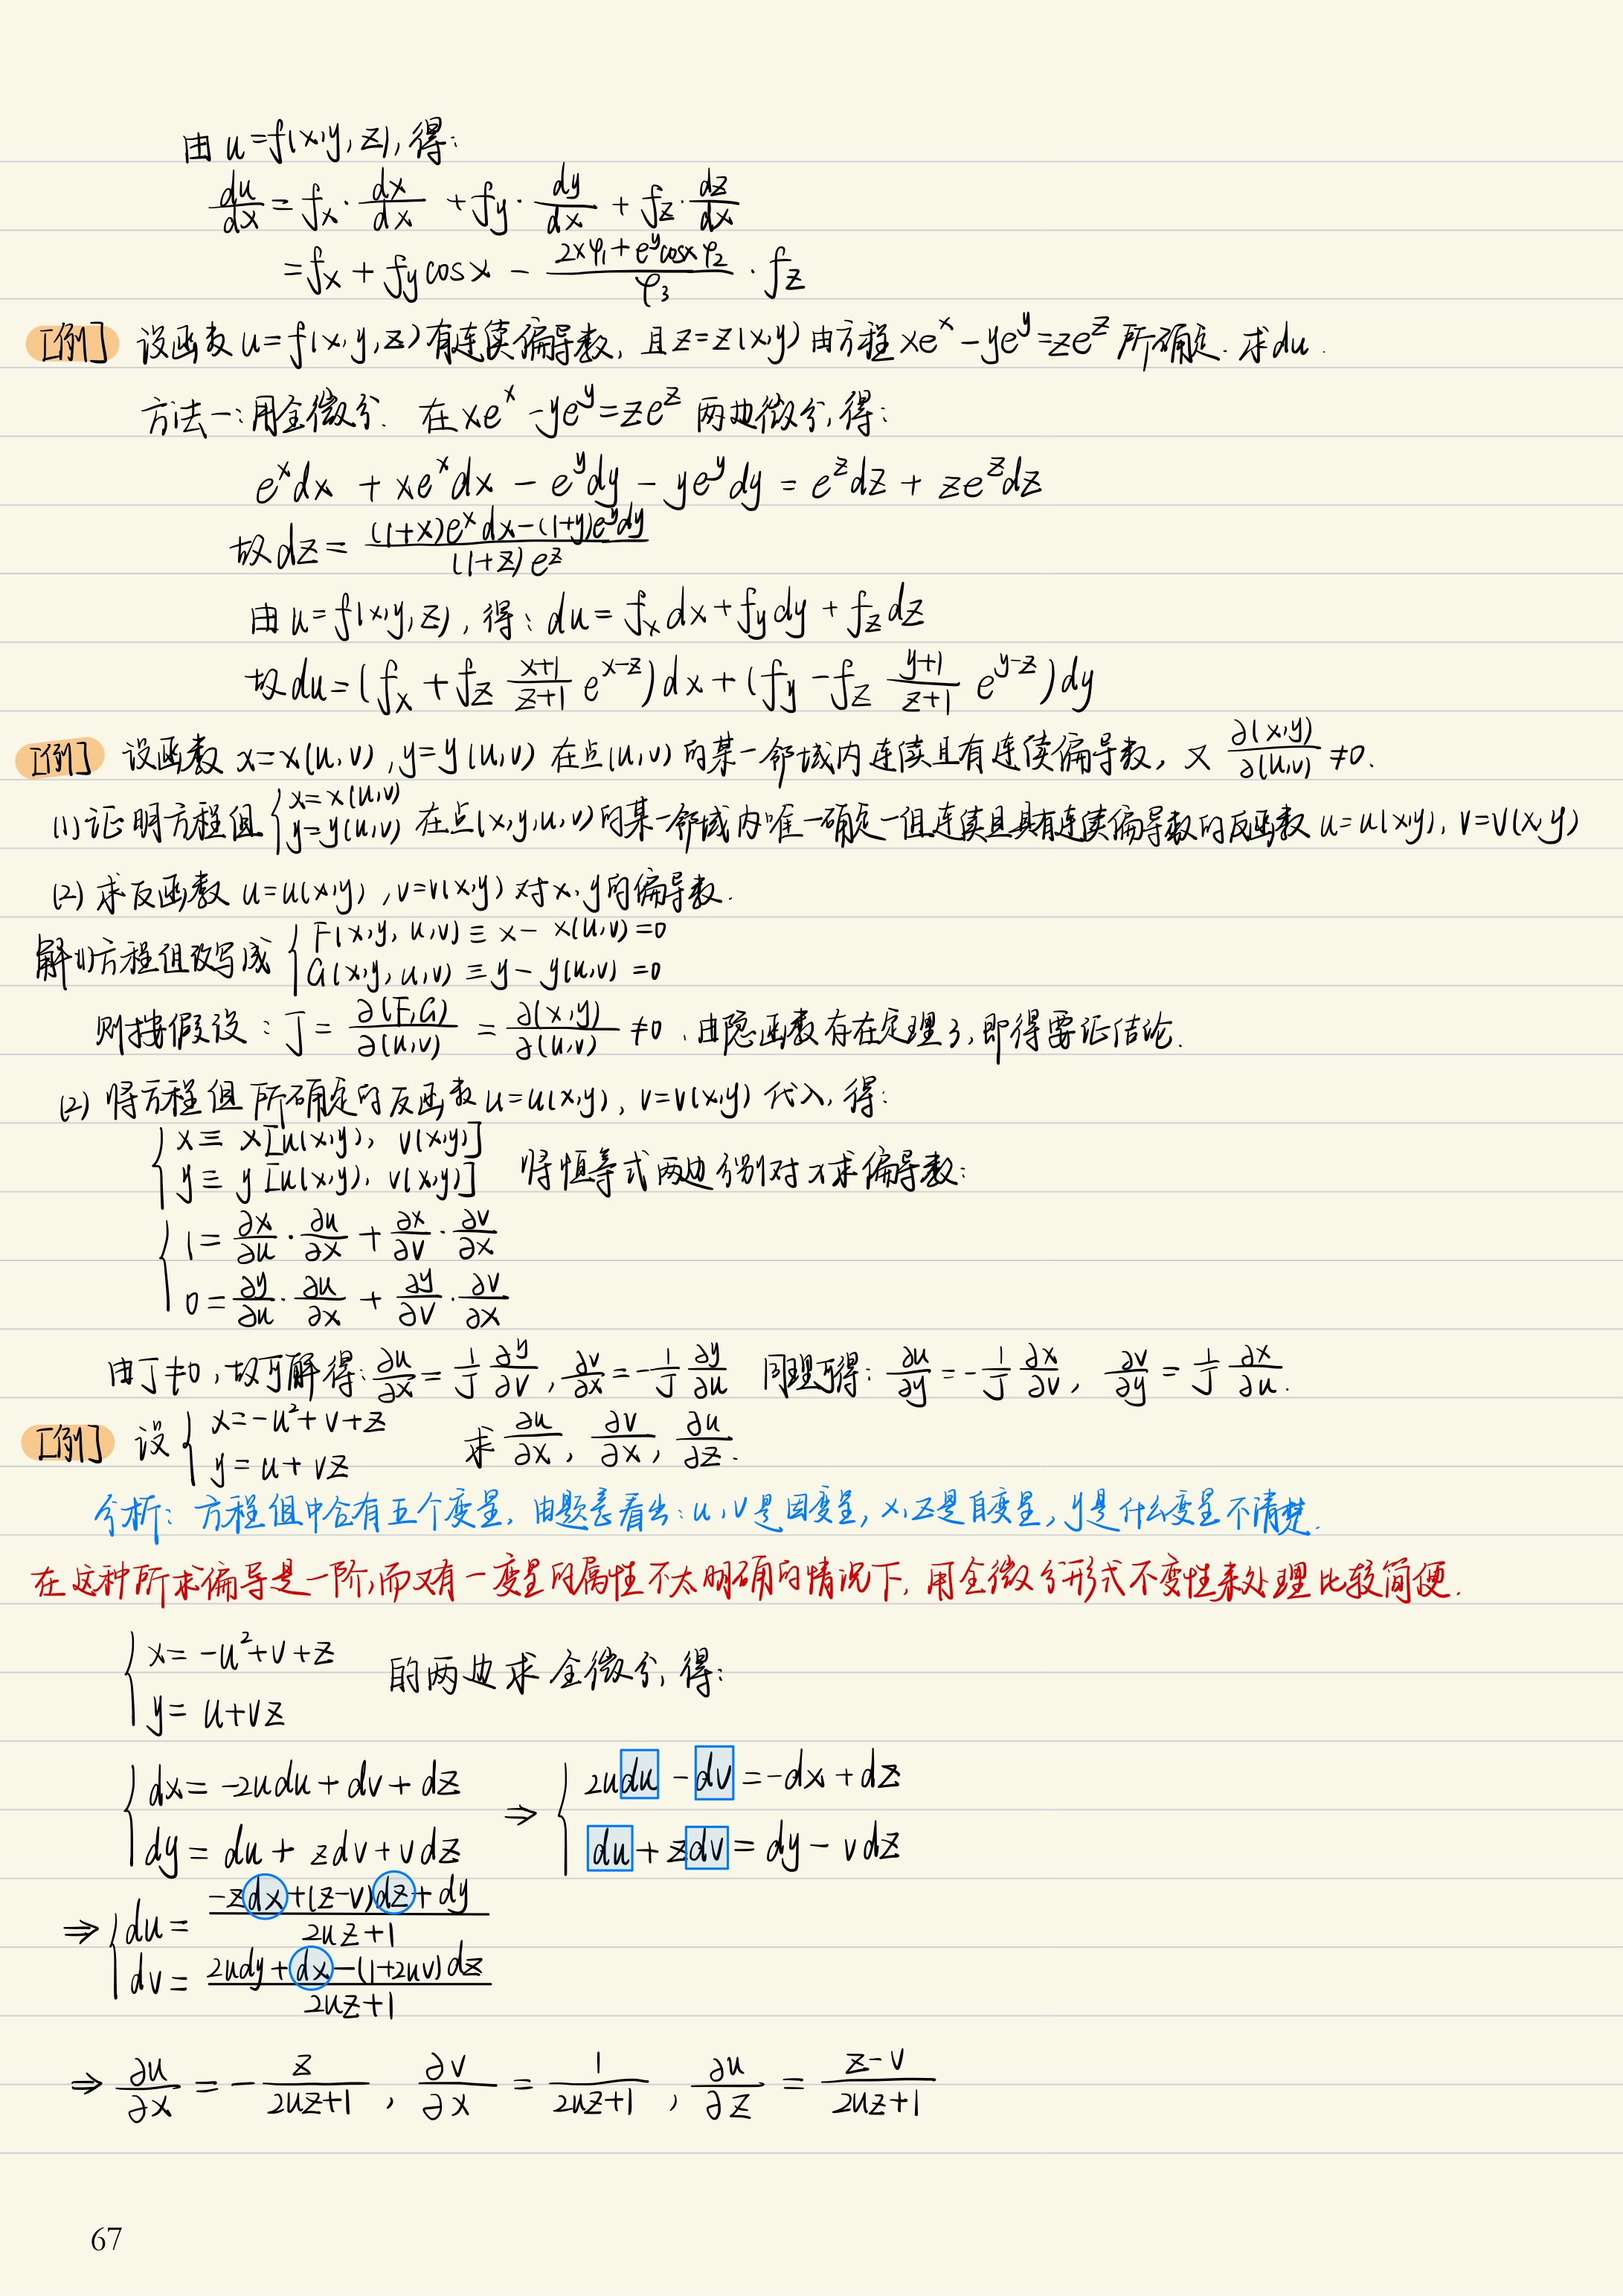 由 u=f(x,y,z),得:
du/dx = fx·dx/dx + fy·dy/dx + fz·dz/dx
= fx + fy cosx − (2xφ₁+e^y cosx φ₂)/φ₃ · fz
[例] 设函数 u=f(x,y,z)有连续偏导数,且 z=z(x,y) 由方程 xe^x−ye^y=ze^z 所确定. 求du.
方法一:用全微分. 在 xe^x−ye^y=ze^z 两边微分,得:
e^x dx + xe^x dx − e^y dy − ye^y dy = e^z dz + ze^z dz
故 dz= ((1+x)e^x dx−(1+y)e^y dy)/((1+z)e^z)
由 u=f(x,y,z),得: du= fx dx+fy dy+fz dz
故 du=(fx+fz (x+1)/(z+1) e^(x−z))dx+(fy−fz (y+1)/(z+1) e^(y−z))dy
[例] 设函数 x=x(u,v),y=y(u,v) 在点(u,v)的某一邻域内连续且有连续偏导数, 又 ∂(x,y)/∂(u,v) ≠0.
(1)证明方程组 { x=x(u,v) y=y(u,v) 在点(x,y,u,v)的某一邻域内唯一确定一组连续且具有连续偏导数的反函数 u=u(x,y), v=v(x,y)
(2) 求反函数 u=u(x,y),v=v(x,y) 对x,y的偏导数.
解(1)方程组改写成 { F(x,y,u,v)≡x−x(u,v)=0
G(x,y,u,v)≡y−y(u,v)=0
则按假设: J= ∂(F,G)/∂(u,v) = ∂(x,y)/∂(u,v) ≠0 ,由隐函数存在定理3,即得要证结论.
(2) 将方程组所确定的反函数 u=u(x,y), v=v(x,y) 代入,得:
{ x≡ x[u(x,y), v(x,y)]
y≡ y[u(x,y), v(x,y)] 将恒等式两边分别对x求偏导数:
{ 1= ∂x/∂u·∂u/∂x + ∂x/∂v·∂v/∂x
0= ∂y/∂u·∂u/∂x + ∂y/∂v·∂v/∂x
由J≠0,故可解得: ∂u/∂x= 1/J ∂y/∂v, ∂v/∂x=−1/J ∂y/∂u 同理可得: ∂u/∂y=−1/J ∂x/∂v, ∂v/∂y= 1/J ∂x/∂u.
[例] 设 { x=−u²+v+z
y=u+vz 求 ∂u/∂x, ∂v/∂x, ∂u/∂z.
分析: 方程组中含有五个变量, 由题意看出:u,v是因变量, x,z是自变量, y是什么变量不清楚.
在这种所求偏导是一阶,而又有一变量的属性不太明确的情况下, 用全微分形式不变性来处理比较简便.
{ x= −u²+v+z
y= u+vz 的两边求全微分,得:
{ dx= −2udu+dv+dz ⇒ { 2udu −dv=−dx+dz
dy= du+ zdv+vdz du+zdv= dy− vdz
⇒ { du= (−zdx+(z−v)dz+dy)/(2uz+1)
dv= (2udy+dx−(1+2uv)dz)/(2uz+1)
⇒ ∂u/∂x = − z/(2uz+1), ∂v/∂x = 1/(2uz+1), ∂u/∂z = (z−v)/(2uz+1)
67